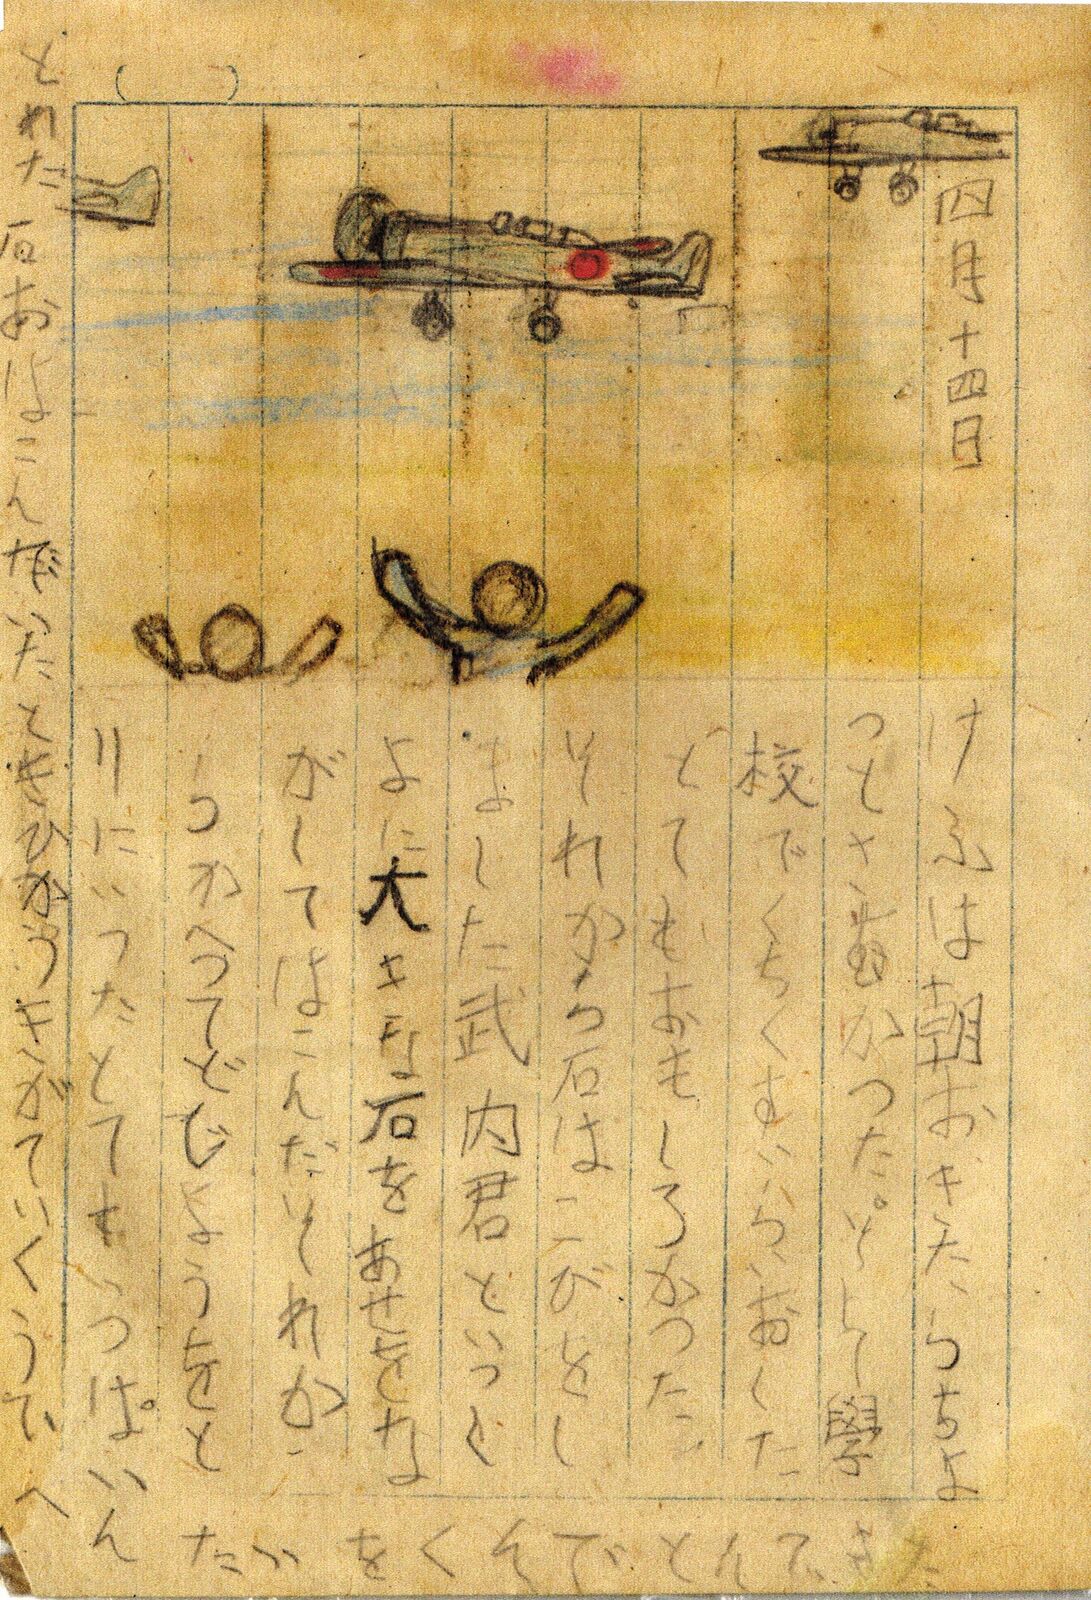 四月十四日
けふは朝おきたらちよ
つとさむかつた。そして學
校でくちくすいらいおした
とてもおもしろかつた
それから石はこびをし
ました武内君といつし
よに大きな石をあせをな
がしてはこんだそれか
らかへつてどじようをと
りにいつたとてもいつぱい
とれた石おはこんでいたときひかうきがていくうでへ
んたいをくんでとんできた